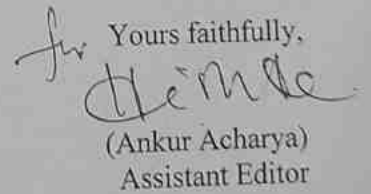 for Yours faithfully,
(Ankur Acharya)
Assistant Editor